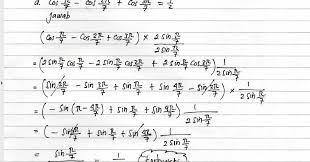 a. cos π/7 − cos 2π/7 + cos 3π/7 = 1/2
jawab
(cos π/7 − cos 2π/7 + cos 3π/7) × 2 sin π/7 / 2 sin π/7
= (2 sin π/7 cos π/7 − 2 sin π/7 cos 2π/7 + 2 sin π/7 cos 3π/7) 1 / 2 sin π/7
= (sin 2π/7 − sin 3π/7 + sin π/7 + sin 4π/7 − sin 2π/7) × 1 / 2 sin π/7
= (− sin (π − 4π/7) + sin π/7 + sin 4π/7) 1 / 2 sin π/7
= (− sin 4π/7 + sin π/7 + sin 4π/7) 1 / 2 sin π/7
= sin π/7 = 1